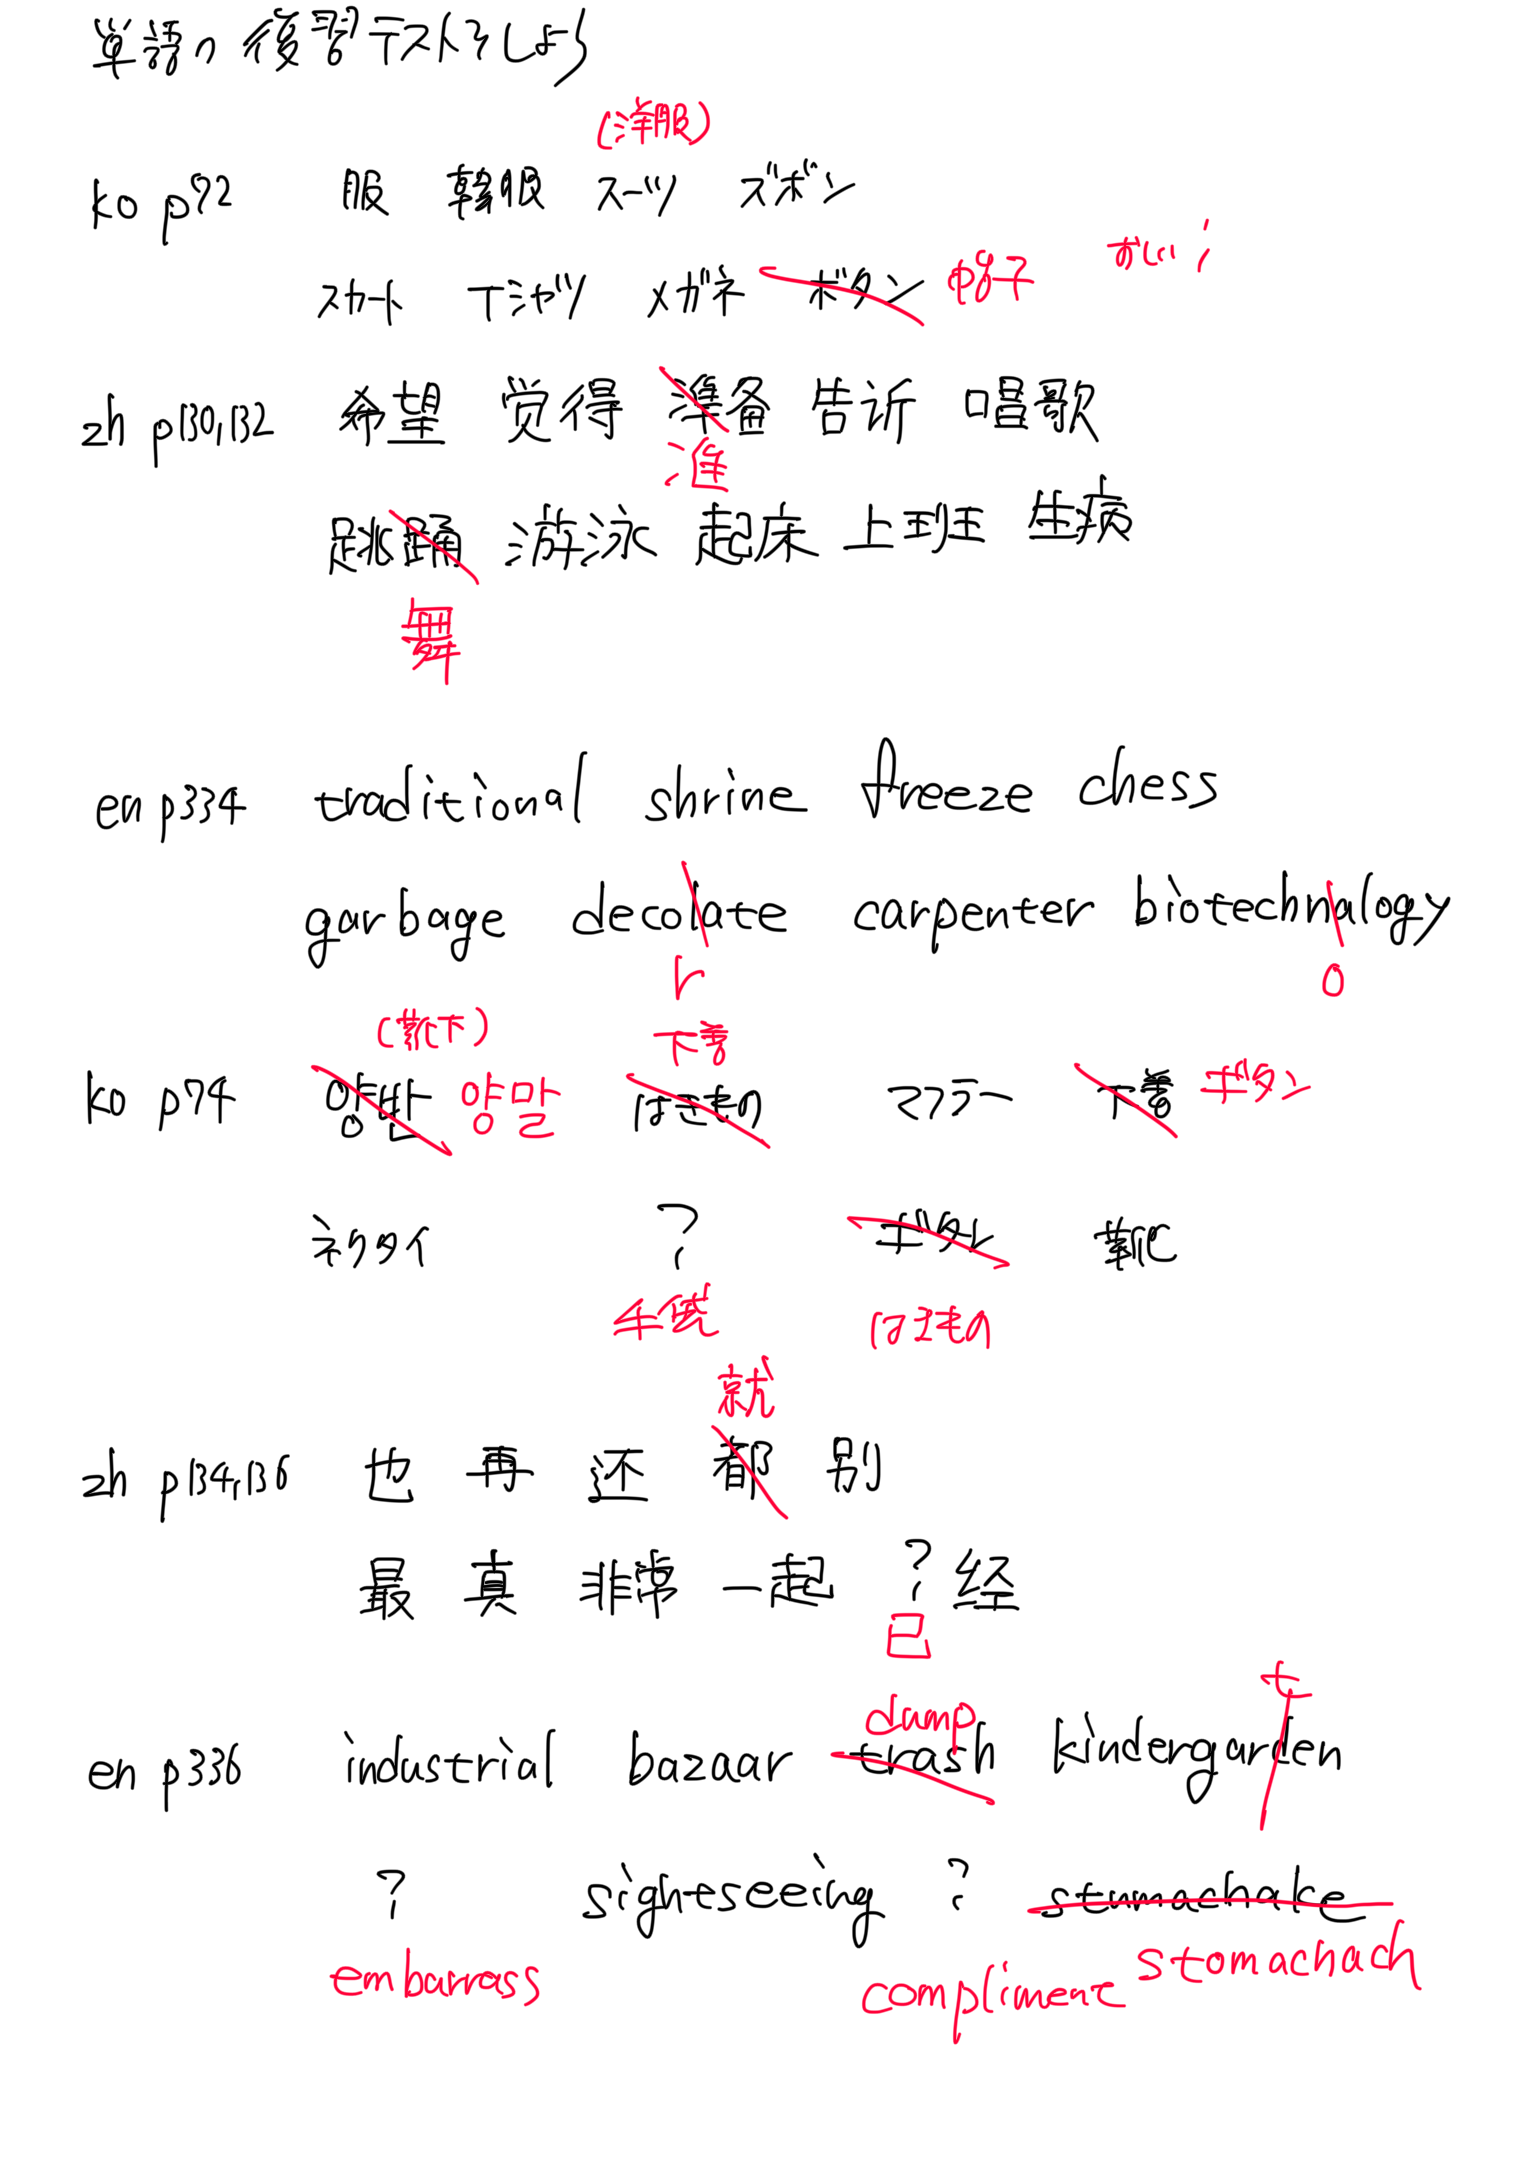 単語の復習テストをしよう
(洋服)
ko p72 服 韓服 スーツ ズボン
スカート Tシャツ メガネ ボタン 帽子 おしい!
zh p130,132 希望 觉得 準备 告诉 唱歌
准
跳踊 游泳 起床 上班 生病
舞
en p334 traditional shrine freeze chess
garbage decolate carpenter biotechnalogy
r o
(靴下) 下着
ko p74 양반 양말 はきもの マフラー 下着 ボタン
ネクタイ ? ボタン 靴
手袋 はきもの
就
zh p134,136 也 再 还 都 别
最 真 非常 一起 ?经
已
damp t
en p336 industrial bazaar trash kindergarden
? sightseeing ? stumachake
embarrass compliment stomachach